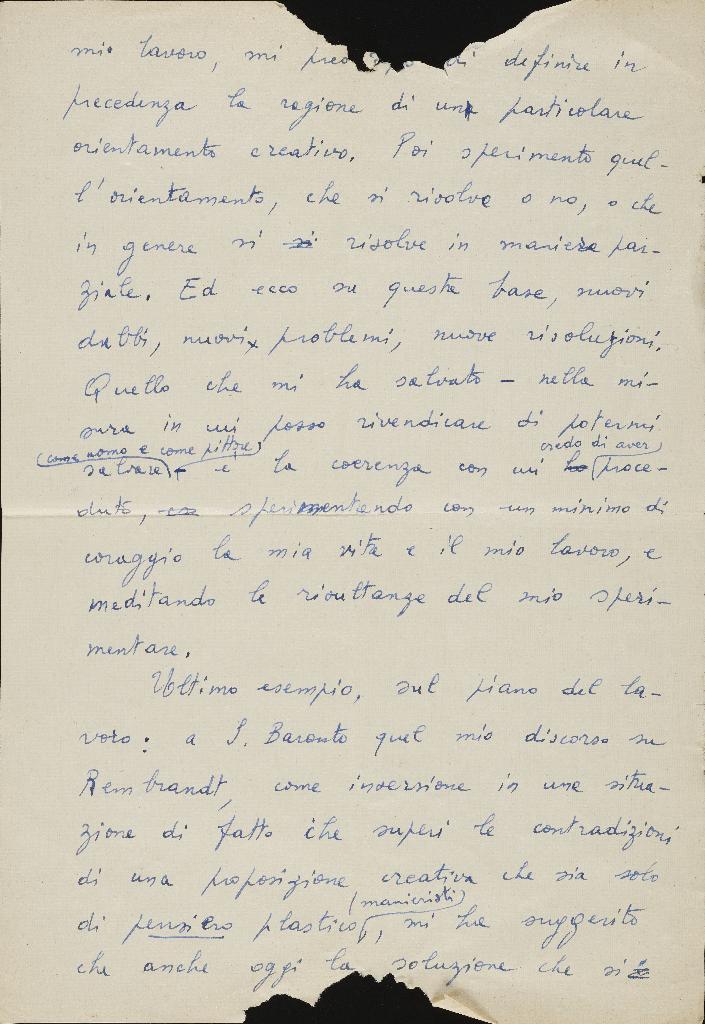 mio lavoro, mi di definire in
precedenza la ragione di una particolare
orientamento creativo. Poi sperimento quel-
l'orientamento, che si risolve o no, o che
in genere si si risolve in maniera par-
ziale. Ed ecco su queste base, nuovi
dubbi, nuovi problemi, nuove risoluzioni.
Quello che mi ha salvato - nella mi-
sura in cui posso rivendicare di potermi
(come uomo e come pittore) credo di aver
salvare - è la coerenza con cui ho proce-
duto, sperimentando con un minimo di
coraggio la mia vita e il mio lavoro, e
meditando le risultanze del mio speri-
mentare.
Ultimo esempio, sul piano del la-
voro: a S. Baronto quel mio discorso su
Rembrandt, come inversione in una situa-
zione di fatto che superi le contradizioni
di una proposizione creativa che sia solo
(manieristi)
di pensiero plastico, mi ha suggerito
che anche oggi la soluzione che si